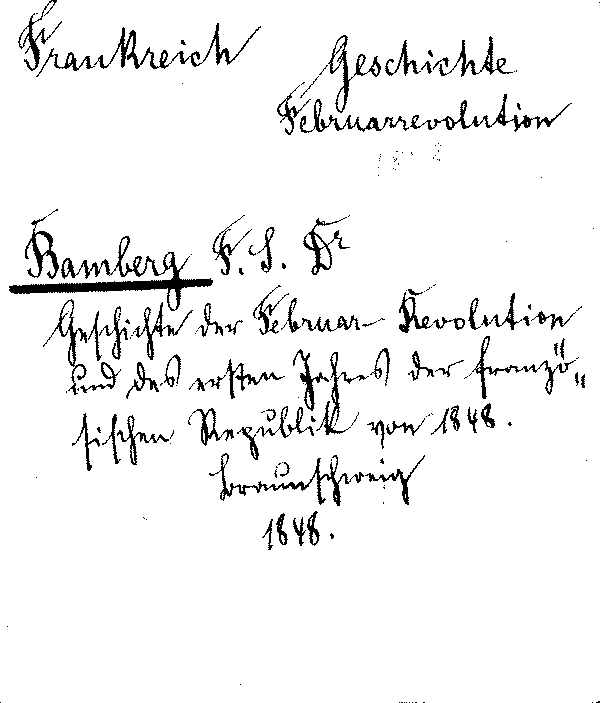 Frankreich
Geschichte
Februarrevolution
Bamberg F. S. Dr
Geschichte der Februar-Revolution
und des ersten Jahres der franzö„
sischen Republik von 1848.
Braunschweig
1848.